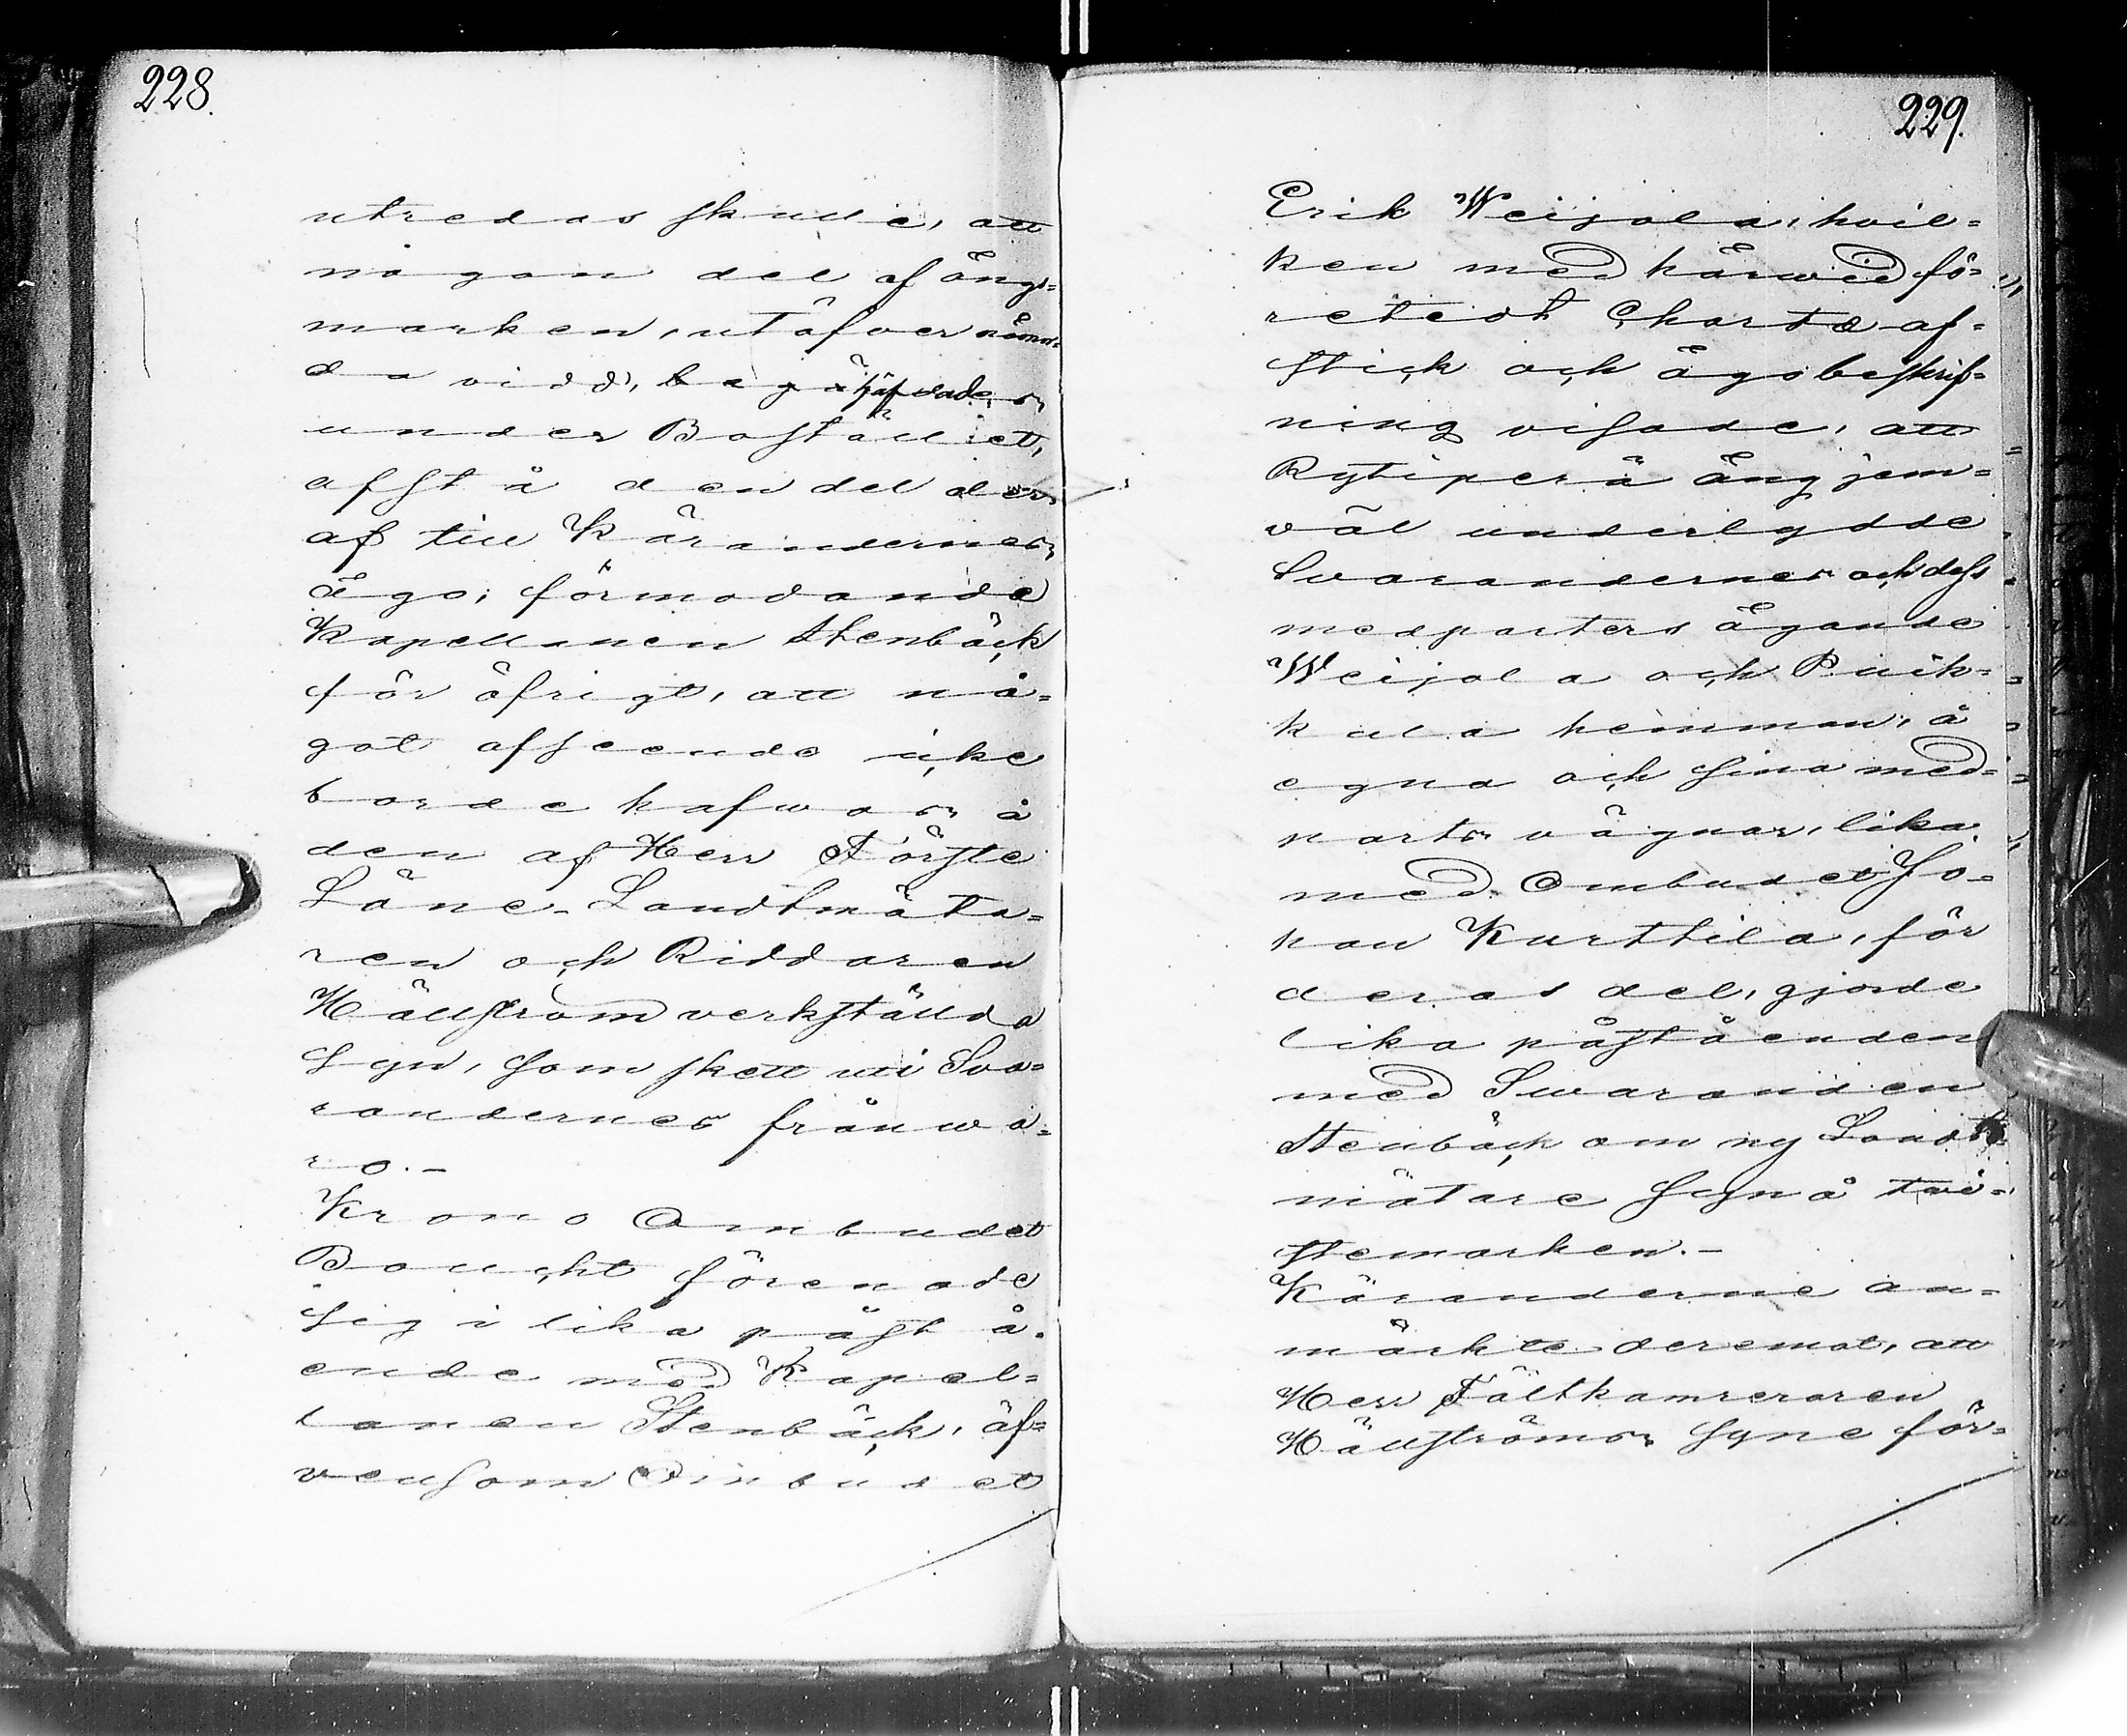 228.
utredas skulle, att
någon del af ängs=
marken, utöfver nämn=
da vidd, häfdades
under Bostället,
afstå den del der=
af till Kärandernes
ägo; förmodande
Kapellanen Stenbäck
för öfrigt, att nå=
got afseende icke
borde hafwas å
den af Herr Förste
Läne-Landtmäta=
ren och Riddaren
Hällström verkstälda
Syn, som skett uti Sva=
randernes frånwa=
ro.-
Krono Ombudet
Boucht förenade
sig i lika påstå=
ende med Kapel=
lanen Stenbäck, äf=
vensom Ombudet
229.
Erik Weijola, hvil=
ken med härwid fö=
retedt Charta af=
stick och ägobeskrif=
ning visade, att
Rytiperä äng jem=
väl underlydde
Swarandernes och dess
medparters ägande
Weijola och Puik=
kula hemman, å
egna och sina med=
parts vägnar, lika
med Ombudet Jo=
han Kurttila, för
deras del, gjorde
lika påståenden
med Swaranden
Stenbäck om ny Landt=
mätare Syn å twi=
stemarken.-
Käranderne an=
märkte deremot, att
Herr Fältkamreraren
Hällströms Syne för=